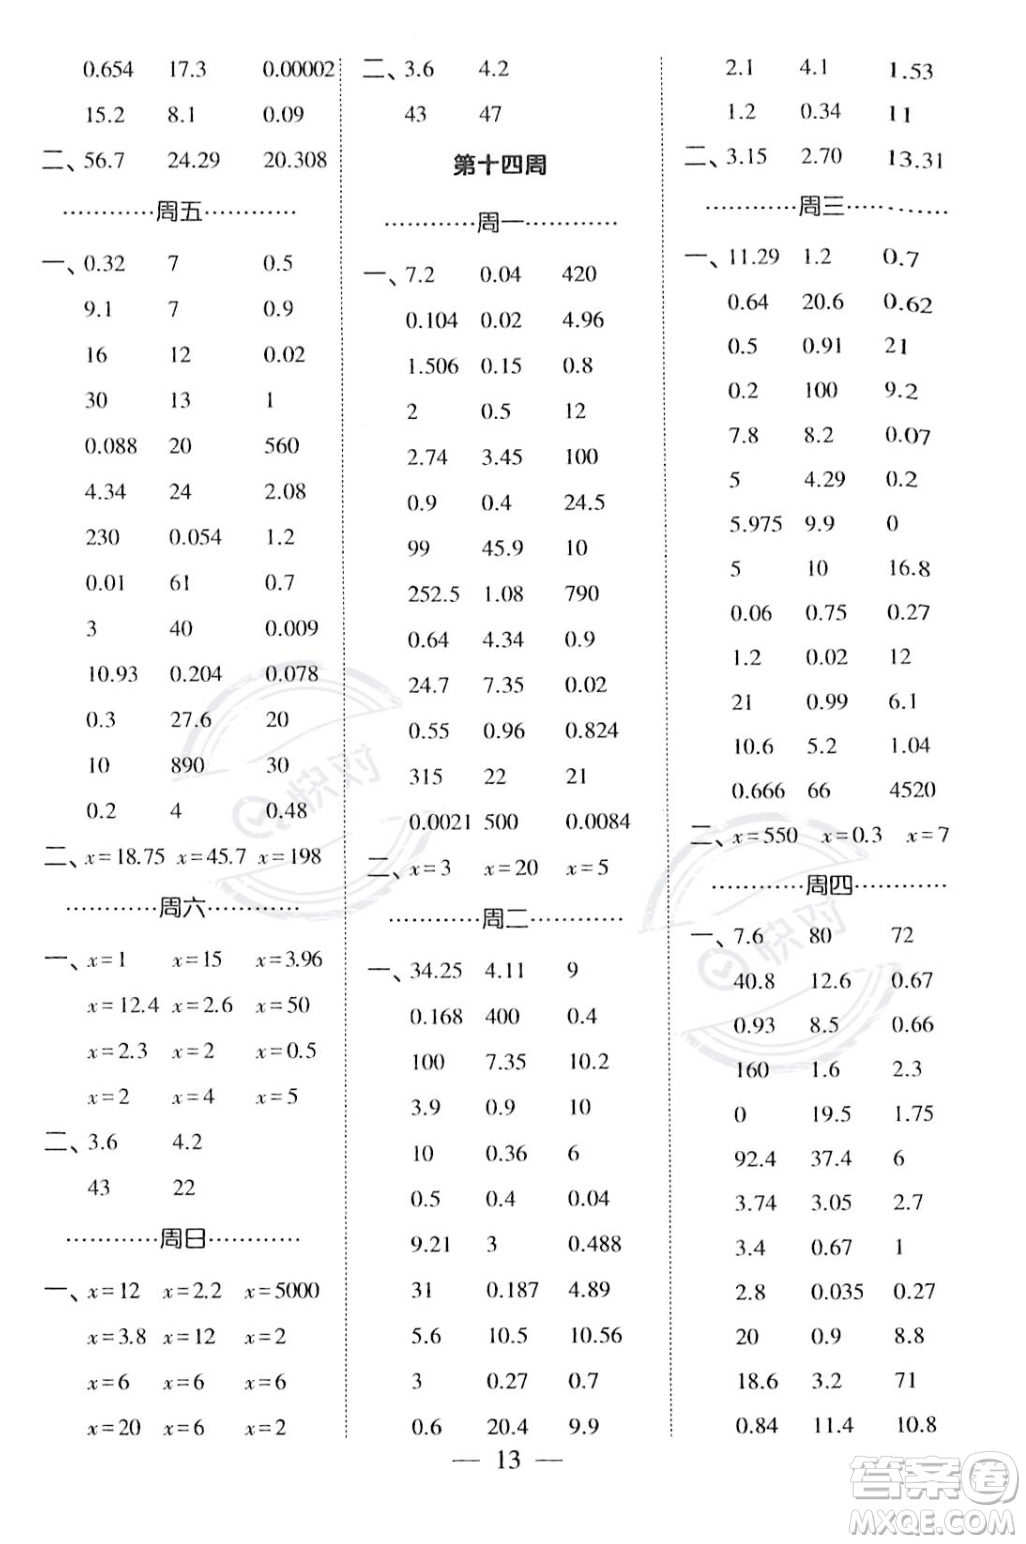 0.654 17.3 0.00002
15.2 8.1 0.09
二、56.7 24.29 20.308
…………周五…………
一、0.32 7 0.5
9.1 7 0.9
16 12 0.02
30 13 1
0.088 20 560
4.34 24 2.08
230 0.054 1.2
0.01 61 0.7
3 40 0.009
10.93 0.204 0.078
0.3 27.6 20
10 890 30
0.2 4 0.48
二、x=18.75 x=45.7 x=198
…………周六…………
一、x=1 x=15 x=3.96
x=12.4 x=2.6 x=50
x=2.3 x=2 x=0.5
x=2 x=4 x=5
二、3.6 4.2
43 22
…………周日…………
一、x=12 x=2.2 x=5000
x=3.8 x=12 x=2
x=6 x=6 x=6
x=20 x=6 x=2
二、3.6 4.2
43 47
第十四周
…………周一…………
一、7.2 0.04 420
0.104 0.02 4.96
1.506 0.15 0.8
2 0.5 12
2.74 3.45 100
0.9 0.4 24.5
99 45.9 10
252.5 1.08 790
0.64 4.34 0.9
24.7 7.35 0.02
0.55 0.96 0.824
315 22 21
0.0021 500 0.0084
二、x=3 x=20 x=5
…………周二…………
一、34.25 4.11 9
0.168 400 0.4
100 7.35 10.2
3.9 0.9 10
10 0.36 6
0.5 0.4 0.04
9.21 3 0.488
31 0.187 4.89
5.6 10.5 10.56
3 0.27 0.7
0.6 20.4 9.9
2.1 4.1 1.53
1.2 0.34 11
二、3.15 2.70 13.31
…………周三…………
一、11.29 1.2 0.7
0.64 20.6 0.62
0.5 0.91 21
0.2 100 9.2
7.8 8.2 0.07
5 4.29 0.2
5.975 9.9 0
5 10 16.8
0.06 0.75 0.27
1.2 0.02 12
21 0.99 6.1
10.6 5.2 1.04
0.666 66 4520
二、x=550 x=0.3 x=7
…………周四…………
一、7.6 80 72
40.8 12.6 0.67
0.93 8.5 0.66
160 1.6 2.3
0 19.5 1.75
92.4 37.4 6
3.74 3.05 2.7
3.4 0.67 1
2.8 0.035 0.27
20 0.9 8.8
18.6 3.2 71
0.84 11.4 10.8
— 13 —
快对
快对
答案卷
MXQE.COM